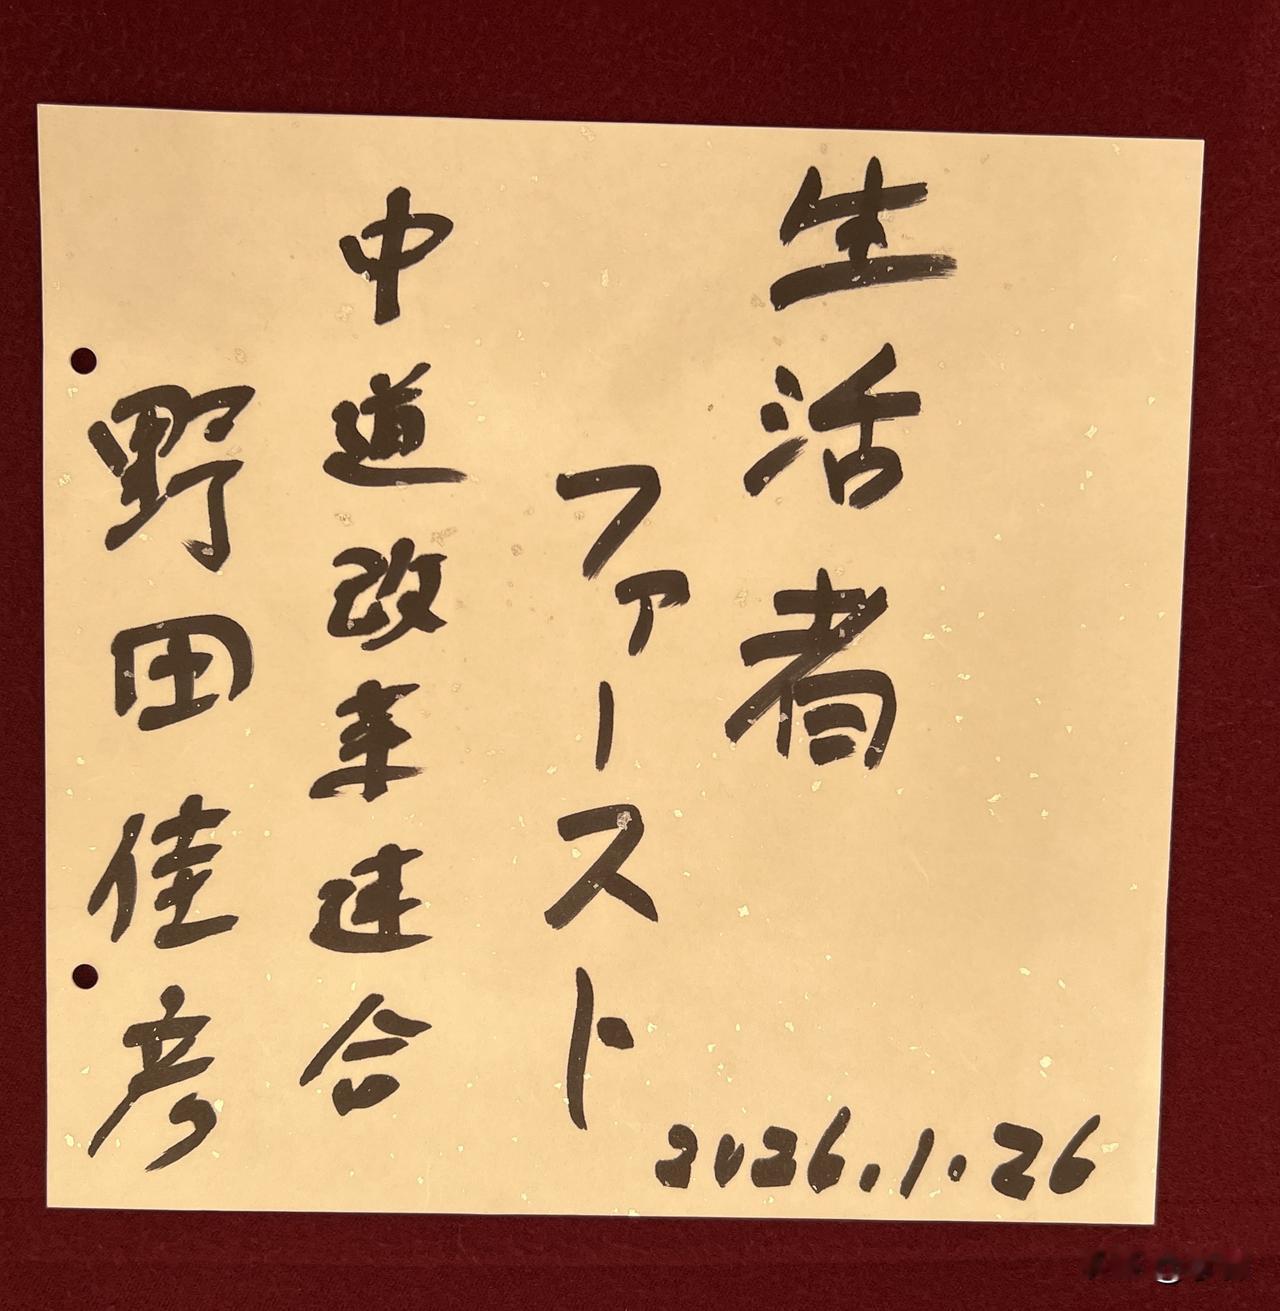 生活者
ファースト
中道改革連合
野田佳彦
2026.1.26